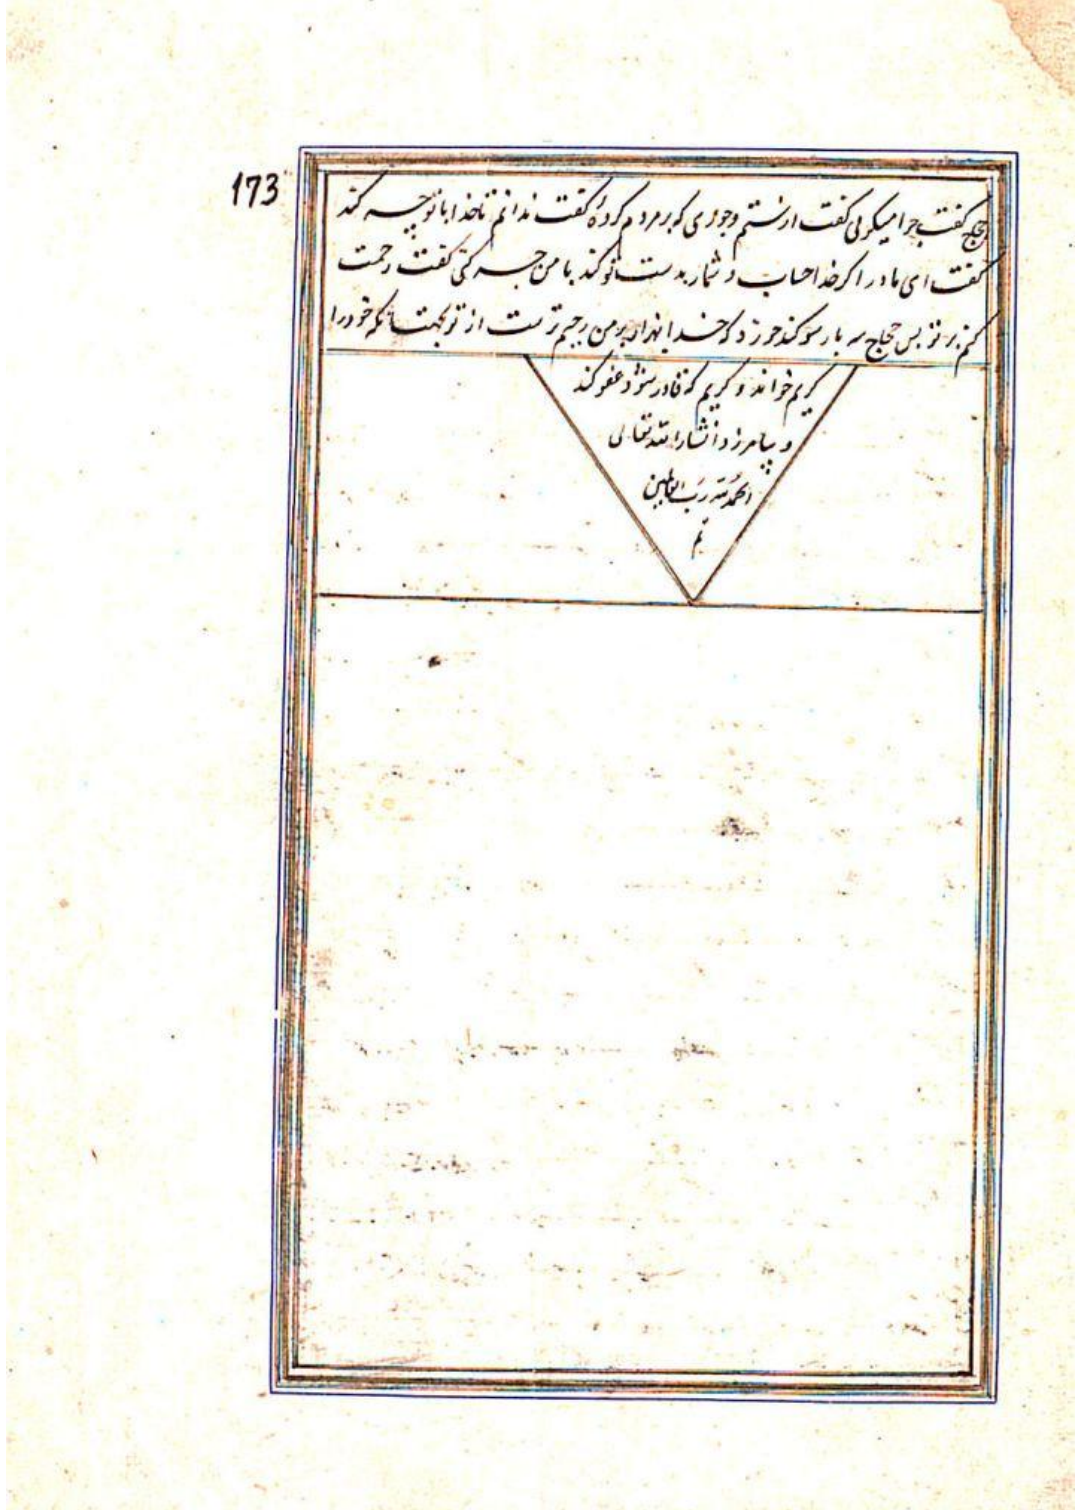 173
حجاج گفت چرا میکریی گفت از ستم وجوری که بر مردم کردهٔ گفت ندانم تا خدا با تو چه کند
گفت ای مادر اکر خدا حساب و شمار بدست تو کند با من چه کنی گفت رحمت
کنم بر تو پس حجاج سه بار سوکند خورد که خدا بر من رحیم ترست از تو بجهت آنکه خود را
کریم خواند و کریم که قادر شود عفو کند
و بیامرزد انشاء الله تعالی
الحمد لله رب العالمین
تم